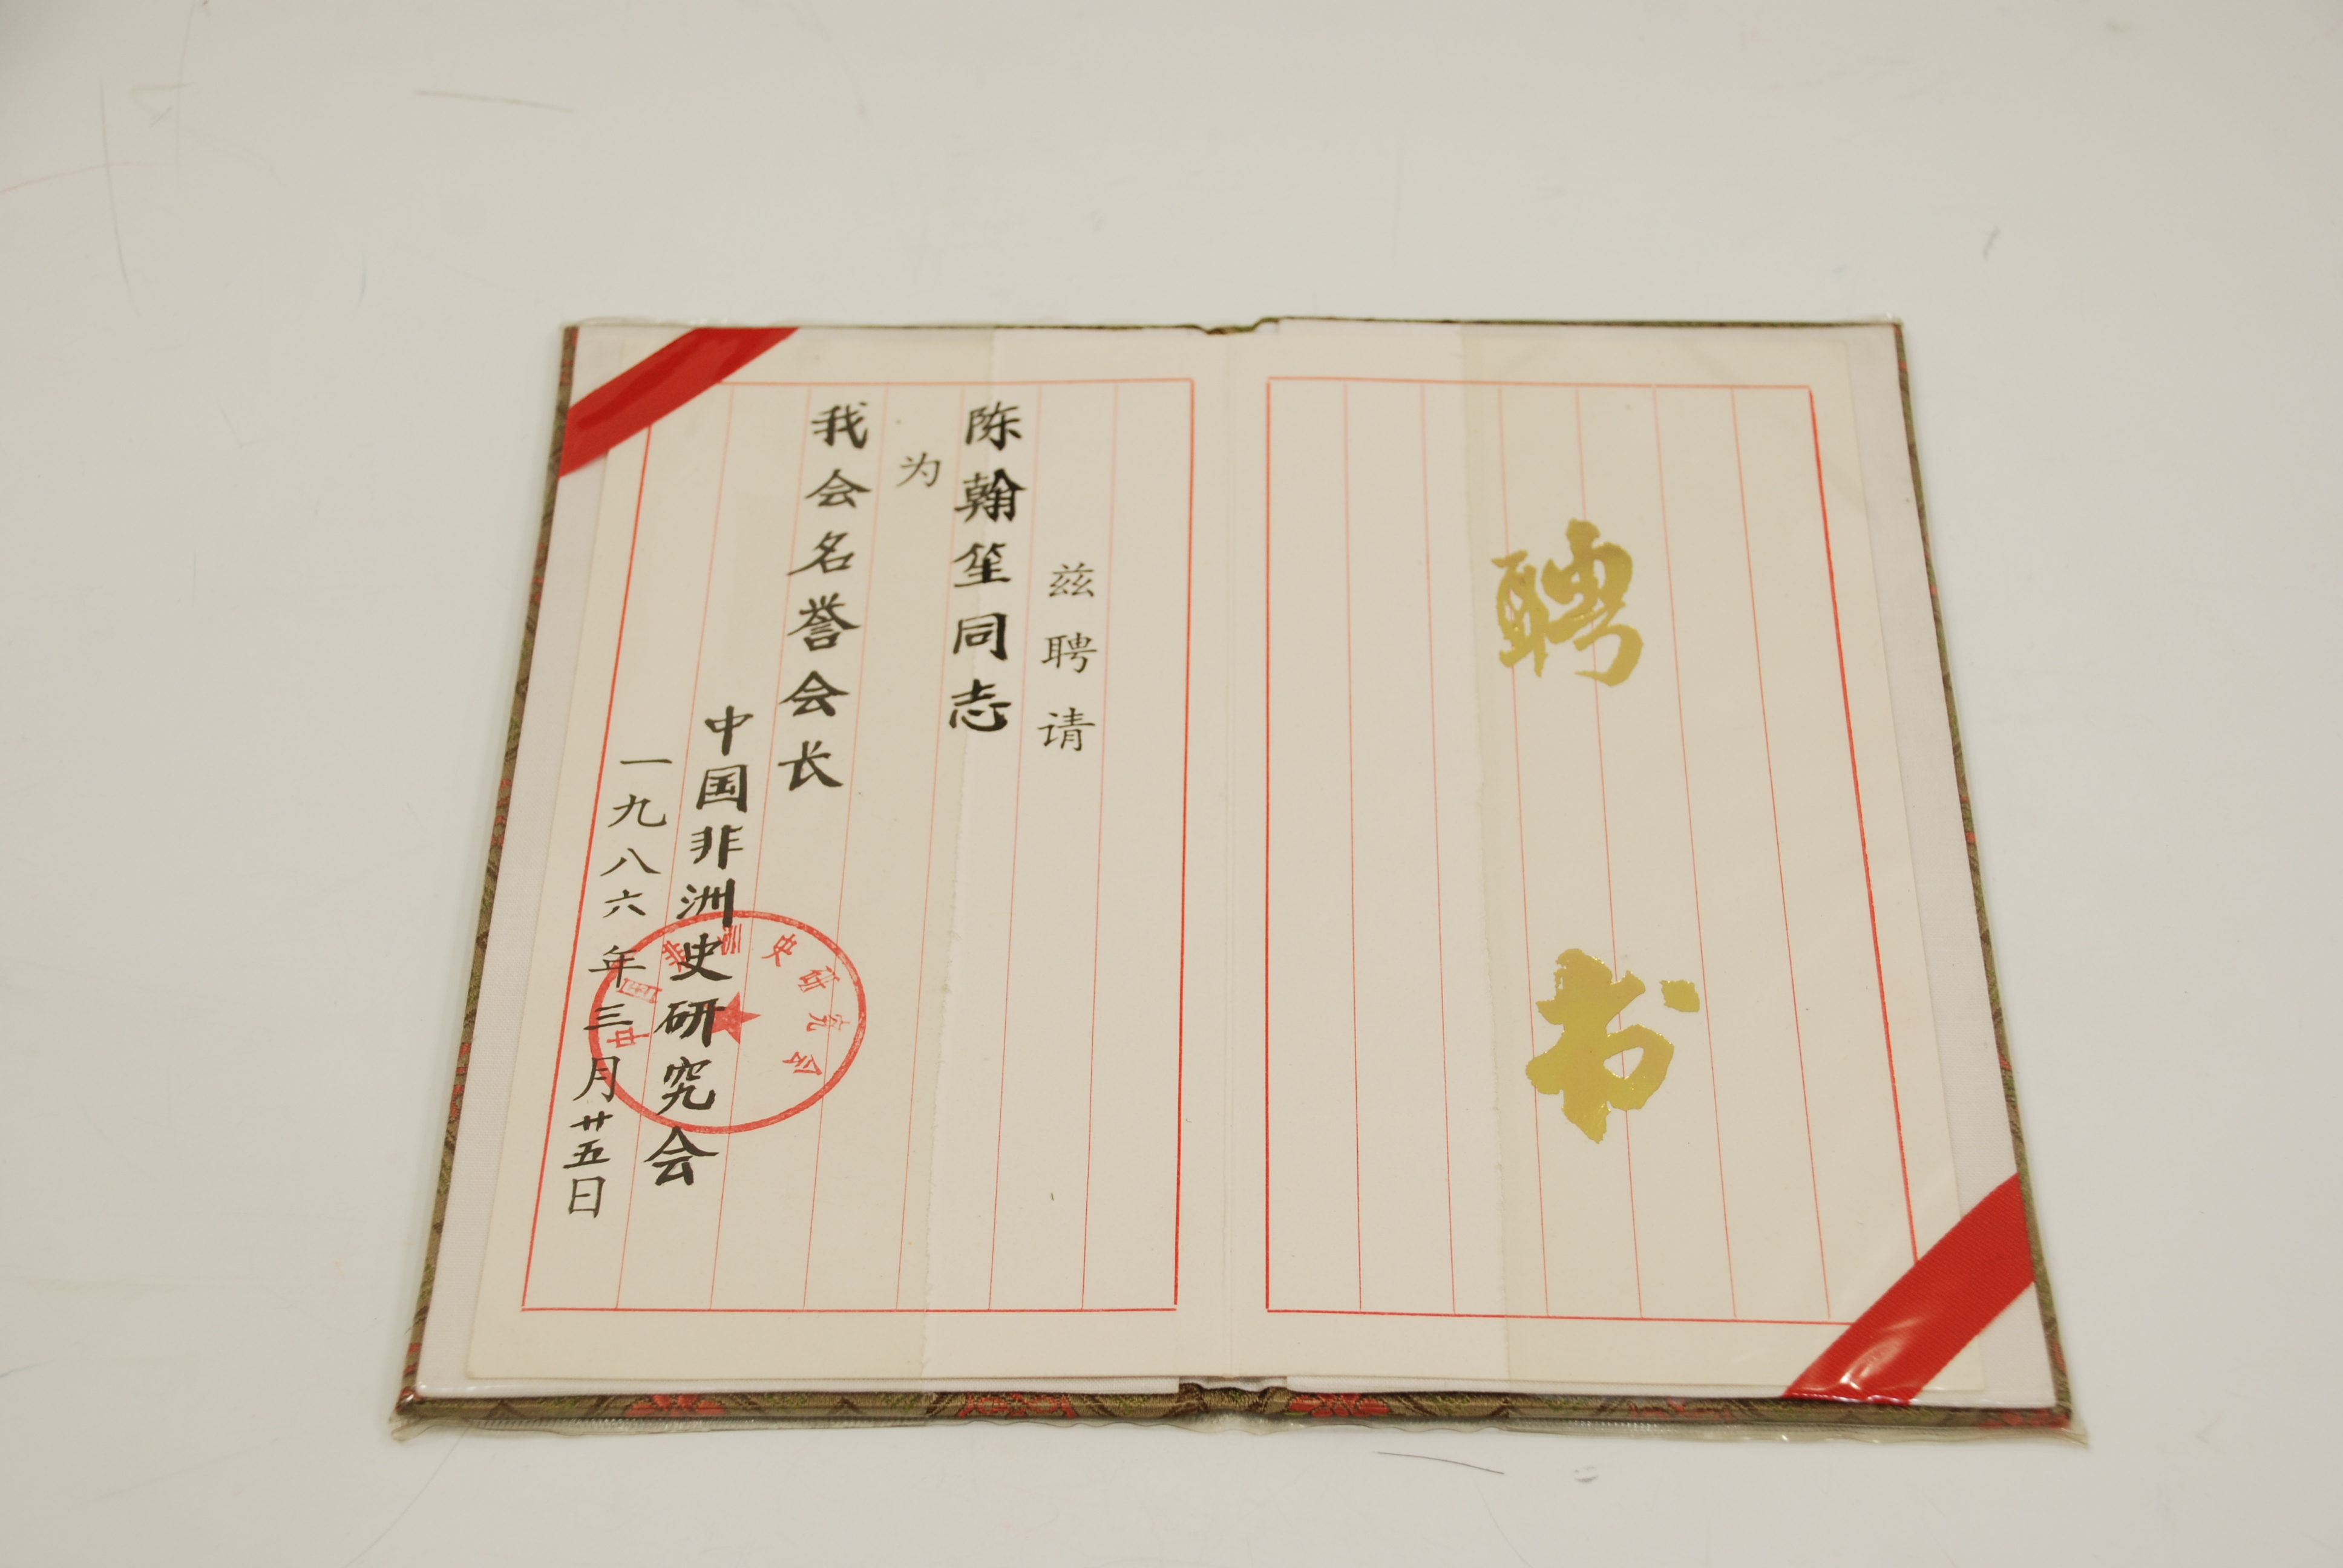 聘书
兹聘请
陈翰笙同志
为
我会名誉会长
中国非洲史研究会
一九八六年三月廿五日
中国非洲史研究会